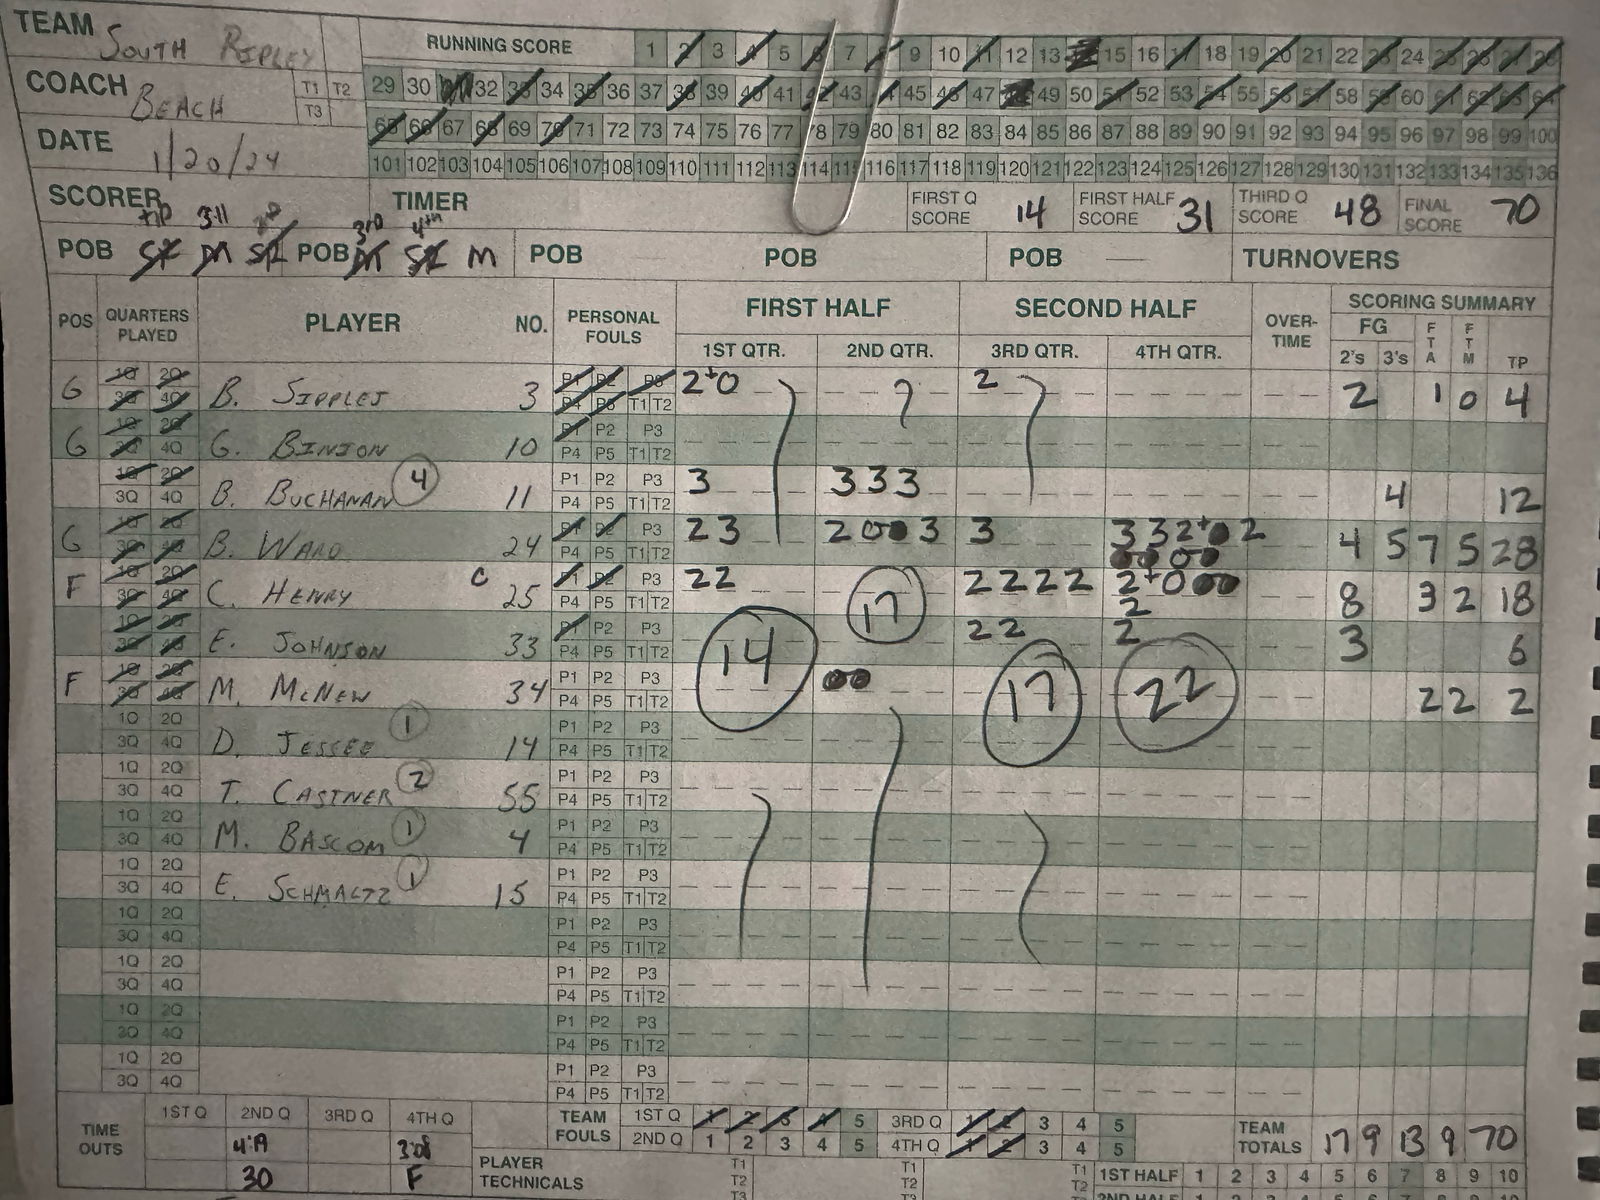 TEAM SOUTH RIPLEY
RUNNING SCORE 1 2 3 4 5 6 7 8 9 10 11 12 13 15 16 17 18 19 20 21 22 23 24 25 26 27 28
COACH BEACH T1 T2 T3
29 30 31 32 33 34 35 36 37 38 39 40 41 42 43 44 45 46 47 48 49 50 51 52 53 54 55 56 57 58 59 60 61 62 63 64
DATE 1/20/24
65 66 67 68 69 70 71 72 73 74 75 76 77 78 79 80 81 82 83 84 85 86 87 88 89 90 91 92 93 94 95 96 97 98 99 100
101 102 103 104 105 106 107 108 109 110 111 112 113 114 115 116 117 118 119 120 121 122 123 124 125 126 127 128 129 130 131 132 133 134 135 136
SCORER TIMER FIRST Q SCORE 14 FIRST HALF SCORE 31 THIRD Q SCORE 48 FINAL SCORE 70
tip 3:11 2nd 3rd 4th
POB SR M SR POB M SR M POB POB POB TURNOVERS
POS QUARTERS PLAYED PLAYER NO. PERSONAL FOULS FIRST HALF SECOND HALF OVER-TIME SCORING SUMMARY
1ST QTR. 2ND QTR. 3RD QTR. 4TH QTR. FG 2's 3's FTA FTM TP
1Q 2Q P1 P2 P3
G 3Q 4Q B. SIPPLES 3 P4 P5 T1 T2 2+0 2 2 1 0 4
1Q 2Q P1 P2 P3
G 3Q 4Q G. BINION 10 P4 P5 T1 T2
1Q 2Q P1 P2 P3
3Q 4Q B. BUCHANAN 4 11 P4 P5 T1 T2 3 333 4 12
1Q 2Q P1 P2 P3
G 3Q 4Q B. WARD 24 P4 P5 T1 T2 23 20●3 3 332+●2 4 5 7 5 28
1Q 2Q P1 P2 P3
F 3Q 4Q C. HENRY C 25 P4 P5 T1 T2 22 17 2222 2+0●● 2 8 3 2 18
1Q 2Q P1 P2 P3
3Q 4Q E. JOHNSON 33 P4 P5 T1 T2 14 22 2 3 6
1Q 2Q P1 P2 P3
F 3Q 4Q M. MCNEW 34 P4 P5 T1 T2 ●● 17 22 2 2 2
1Q 2Q P1 P2 P3
3Q 4Q D. JESSEE 1 14 P4 P5 T1 T2
1Q 2Q P1 P2 P3
3Q 4Q T. CASTNER 2 55 P4 P5 T1 T2
1Q 2Q P1 P2 P3
3Q 4Q M. BASCOM 1 4 P4 P5 T1 T2
1Q 2Q P1 P2 P3
3Q 4Q E. SCHMALTZ 1 15 P4 P5 T1 T2
1Q 2Q P1 P2 P3
3Q 4Q P4 P5 T1 T2
1Q 2Q P1 P2 P3
3Q 4Q P4 P5 T1 T2
1Q 2Q P1 P2 P3
3Q 4Q P4 P5 T1 T2
1Q 2Q P1 P2 P3
3Q 4Q P4 P5 T1 T2
TIME OUTS 1ST Q 2ND Q 3RD Q 4TH Q TEAM FOULS 1ST Q 1 2 3 4 5 3RD Q 1 2 3 4 5 TEAM TOTALS 17 9 13 9 70
4:19 3:08 2ND Q 1 2 3 4 5 4TH Q 1 2 3 4 5
30 F PLAYER TECHNICALS T1 T2 T3 T1 T2 T1 T2 1ST HALF 1 2 3 4 5 6 7 8 9 10
2ND HALF